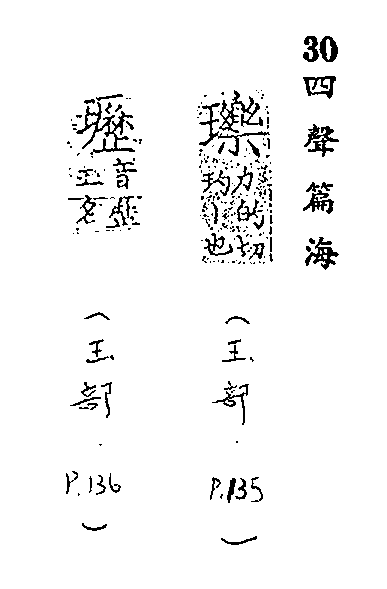 30四聲篇海
瓅
力的切
玓丨也
(玉部.P.135)
音
玉名
(玉部.P.136)